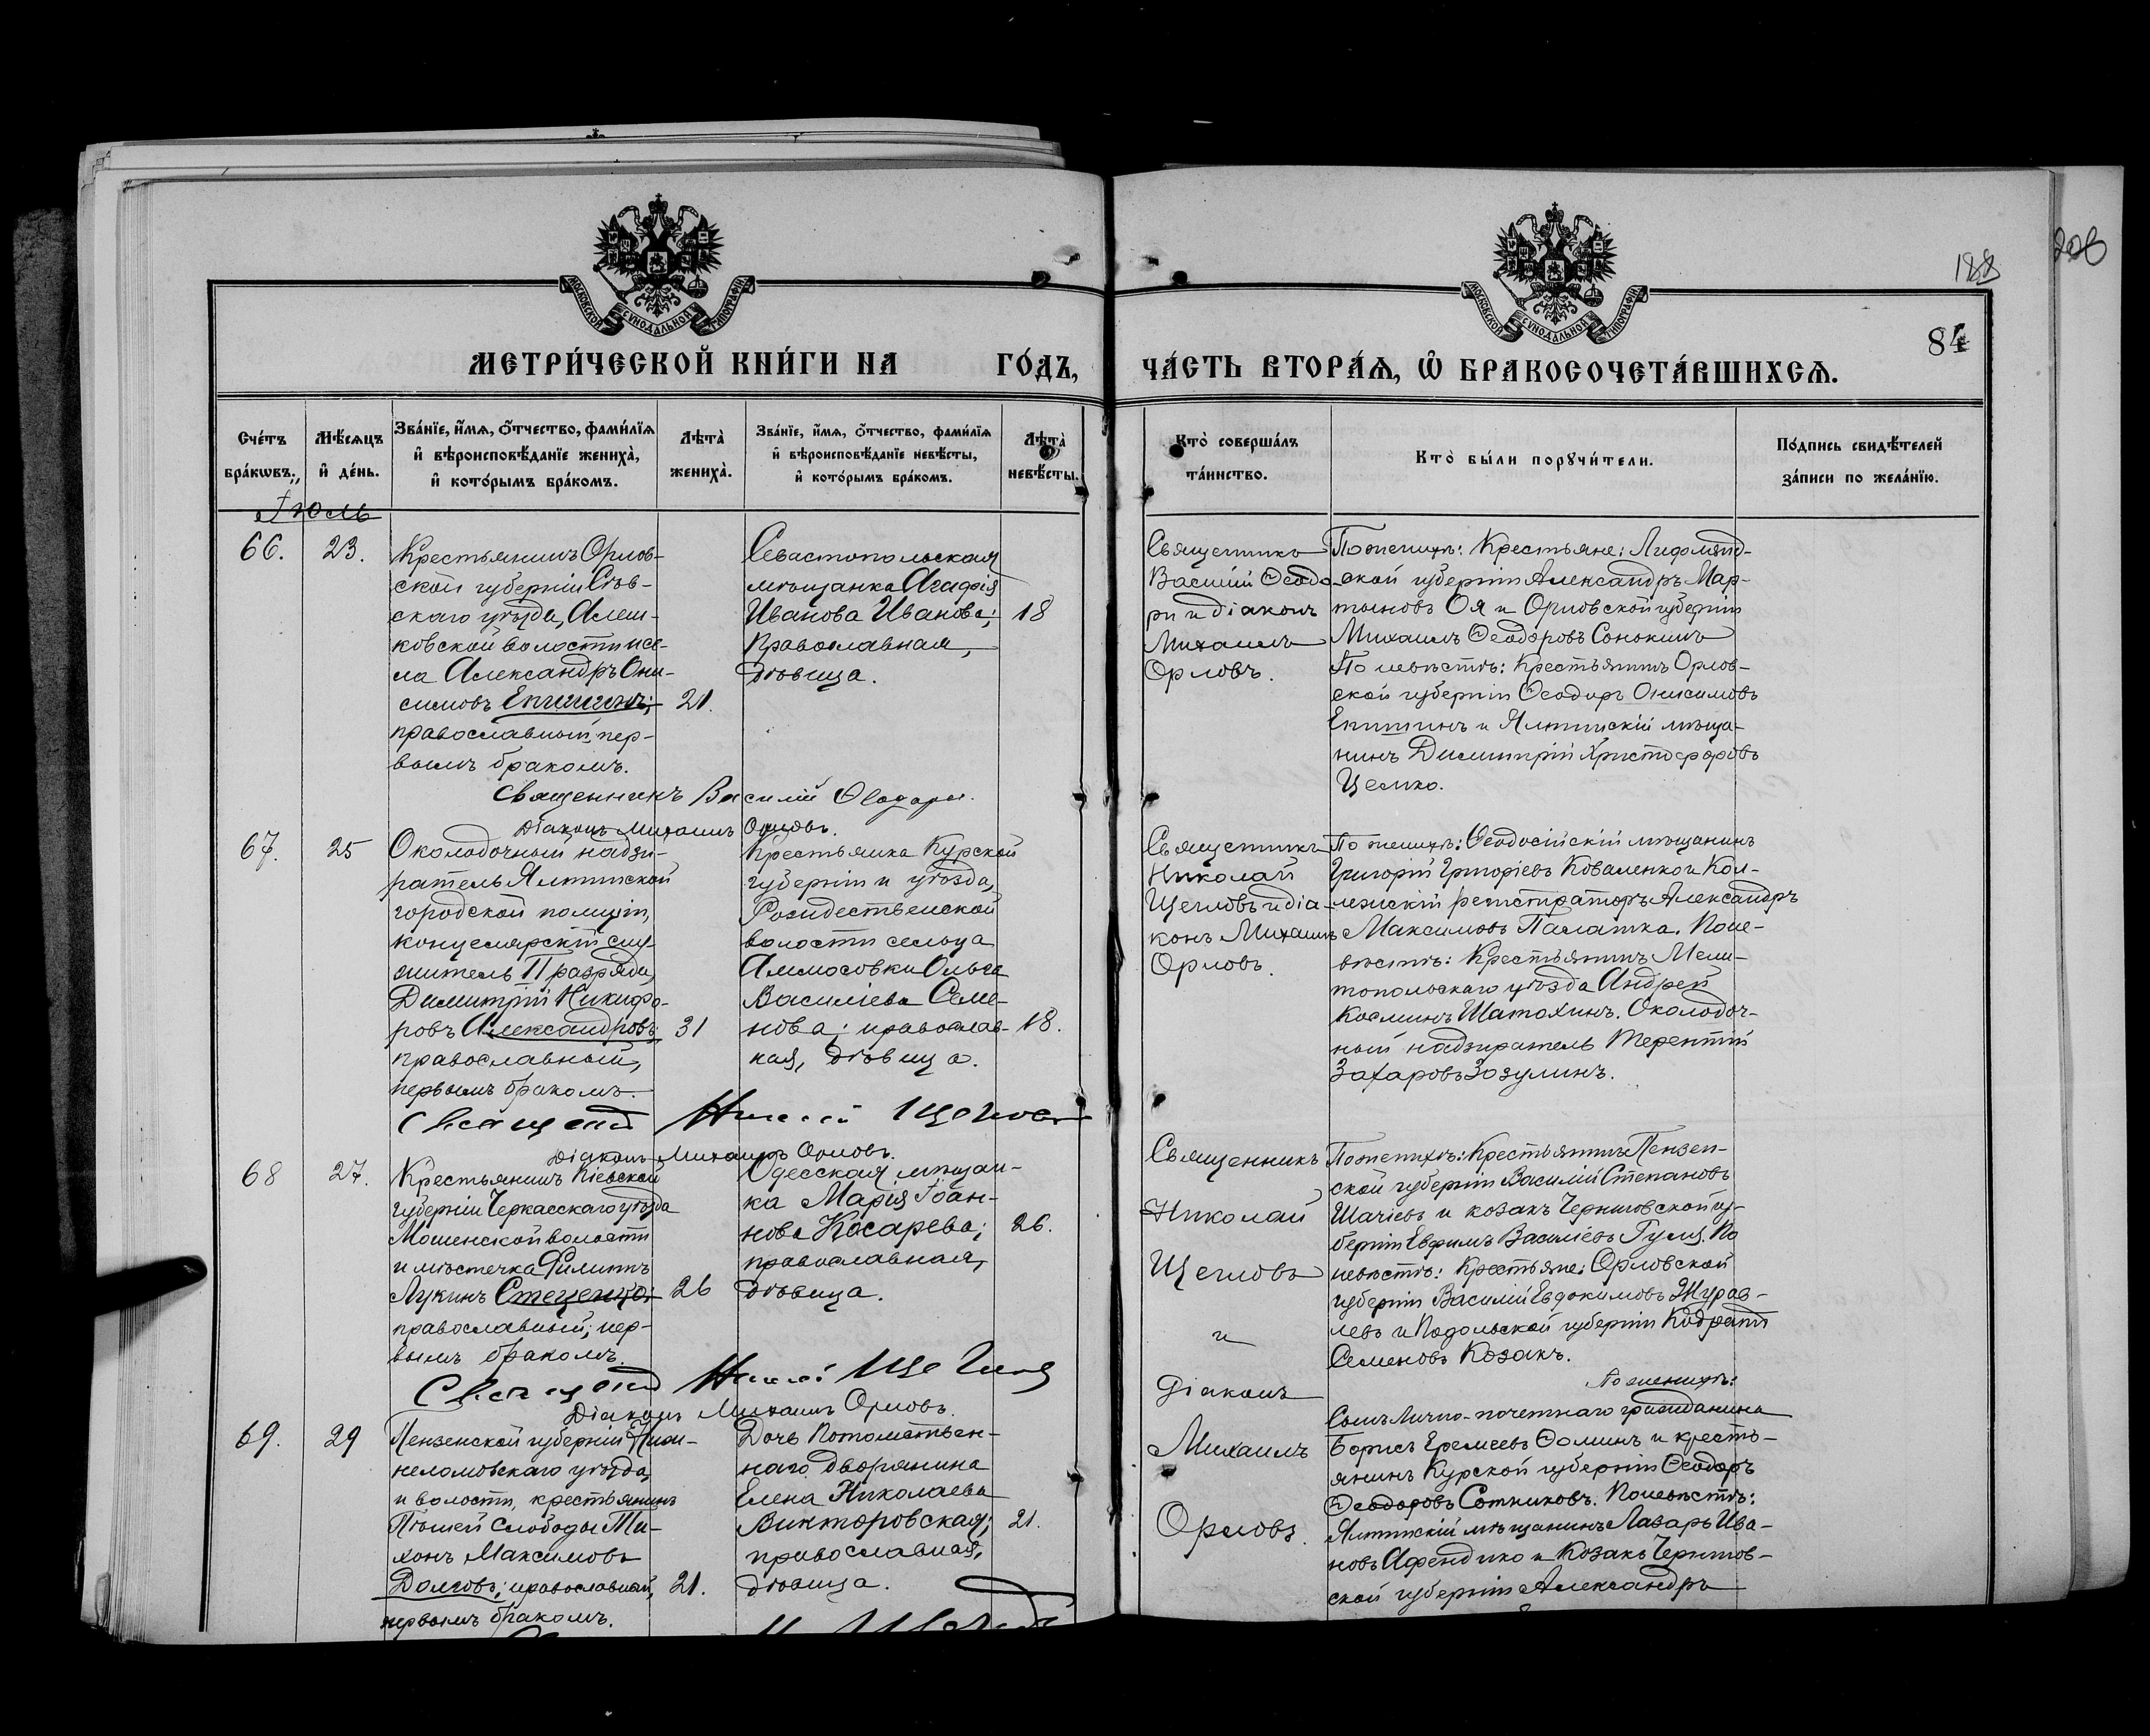 МОСКОВСКОЙ СѴНОДАЛЬНОЙ ТИПОГРАФІИ
МЕТРИ́ЧЕСКОЙ КНИ́ГИ НА ГО́ДЪ,
Сче́тъ бра́кѡвъ.
Мѣ́сяцъ и҆ де́нь.
Зва́нїе, и҆́мя, ѻ҆́тчество, фами́лїя
и҆ вѣроисповѣ́данїе жениха̀,
и҆ кото́рымъ бра́комъ.
Лѣта̀ жениха̀.
Зва́нїе, и҆́мя, ѻ҆́тчество, фами́лїя
и҆ вѣроисповѣ́данїе невѣ́сты,
и҆ кото́рымъ бра́комъ.
Лѣта̀ невѣ́сты.
Іюль
66.
23.
Крестьянинъ Орлов-
ской губерніи Сѣв-
скаго уѣзда, Алеш-
ковской волости и се-
ла Александръ Они-
симовъ Епишинъ;
православный, пер-
вымъ бракомъ.
21.
Севастопольская
мѣщанка Агафія
Иванова Иванова;
православная,
дѣвица.
18
Священникъ Василій Ѳеодори.
Діаконъ Михаилъ Орловъ.
67.
25
Околодочный надзи-
ратель Ялтинской
городской полиціи,
концелярскій слу-
житель II разряда,
Димитрій Никифо-
ровъ Александровъ;
православный,
первымъ бракомъ.
31
Крестьянка Курской
губерніи и уѣзда,
Рождественской
волости сельца
Ольга
Василіева Семе-
нова; православ-
ная, дѣвица.
18.
Священ Щегловъ
Діаконъ Михаилъ Орловъ.
68
27.
Крестьянинъ Кіевской
губерніи Черкасскаго уѣзда
Мошенской волости
и мѣстечка Филиппъ
Лукинъ Стеценко;
православный; пер-
вымъ бракомъ.
26
Одесская мѣщан-
ка Марія Іоан-
нова Косарева;
православная,
дѣвица.
26.
Священ Щегловъ
Діаконъ Михаилъ Орловъ.
69.
29
Пензенской губерніи Ниж-
неломовскаго уѣзда,
и волости, крестьянинъ
Пѣшей Слободы Ти-
хонъ Максимовъ
Долговъ; православный,
первымъ бракомъ.
21.
Дочь Потомствен-
наго дворянина
Елена Николаева
Викторовская;
православная,
дѣвица.
21.
МОСКОВСКОЙ СѴНОДАЛЬНОЙ ТИПОГРАФІИ
188
208
84
ЧА́СТЬ ВТОРА́Ѧ, Ѽ БРАКОСОЧЕТА́ВШИХСѦ.
Кто̀ соверша́лъ
та́инство.
Кто̀ бы́ли порꙋчи́тели.
По́дпись свидѣ́телей
за́писи по жела́нїю.
Священникъ
Василій Ѳеодо-
ри и діаконъ
Михаилъ
Орловъ.
По женихѣ: Крестьяне: Лифлянд-
ской губерніи Александръ Мар-
тыновъ Оя и Орловской губерніи
Михаилъ Ѳеодоровъ Сонокинъ
По невѣстѣ: Крестьянинъ Орлов-
ской губерніи Ѳеодоръ Онисимовъ
Епишинъ и Ялтинскій мѣща-
нинъ Димитрій Христофоровъ
Цемко.
Священникъ
Николай
Щегловъ и діа-
конъ Михаилъ
Орловъ.
По женихѣ: Ѳеодосійскій мѣщанинъ
Григорій Григоріевъ Коваленко и Кол-
лежскій регистраторъ Александръ
Максимовъ Палатка. По не-
вѣстѣ: Крестьянинъ Мели-
топольскаго уѣзда Андрей
Косминъ Шатохинъ. Околодоч-
ный надзиратель Терентій
Захаровъ Зозулинъ.
Священникъ
Николай
Щегловъ
и
Діаконъ
Михаилъ
Орловъ.
По женихѣ: Крестьянинъ Пензен-
ской губерніи Василій Степановъ
и козакъ Черниговской гу-
берніи Евфимъ Василіевъ Гуля. По
невѣстѣ: Крестьяне: Орловской
губерніи Василій Евдокимовъ Журав-
левъ и Подольской губерніи Кодратъ
Семеновъ Козакъ.
По женихѣ:
Сынъ Лично-почетнаго гражданина
Борисъ Еремеевъ Ѳоминъ и кресть-
янинъ Курской губерніи Ѳеодоръ
Ѳеодоровъ Сотниковъ. По невѣстѣ:
Ялтинскій мѣщанинъ Лазарь Ива-
новъ Афендико и Козакъ Чернигов-
ской губерніи Александръ